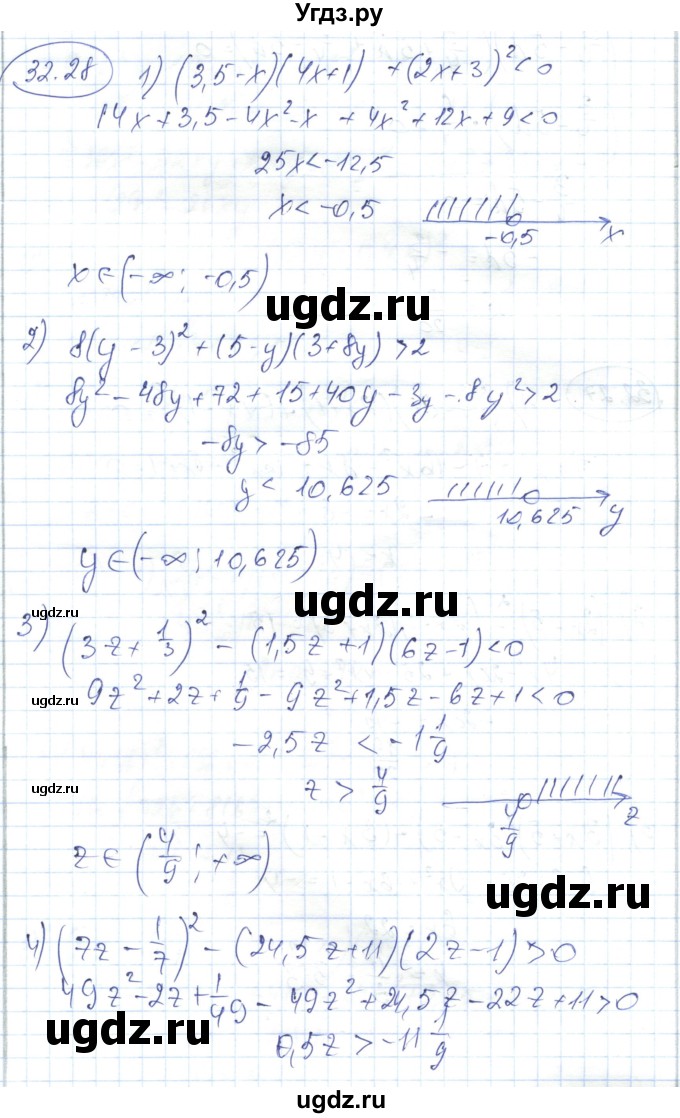 Угдз.ру
32.28 1) (3,5-x)(4x+1) +(2x+3)²<0
14x+3,5-4x²-x +4x²+12x+9<0
25x<-12,5
x<-0,5
-0,5 x
x∈(-∞; -0,5)
ugdz.ru
2) 8(y-3)²+(5-y)(3+8y)>2
8y²-48y+72+15+40y-3y-8y²>2
-8y>-85
y<10,625
10,625 y
y∈(-∞; 10,625)
ugdz.ru
ugdz.ru
3) (3z+1/3)²-(1,5z+1)(6z-1)<0
9z²+2z+1/9-9z²+1,5z-6z+1<0
ugdz.ru
-2,5z <-1 1/9
ugdz.ru
z > 4/9
4/9 z
z∈(4/9; +∞)
ugdz.ru
4) (7z-1/7)²-(24,5z+11)(2z-1)>0
49z²-2z+1/49-49z²+24,5z-22z+11>0
ugdz.ru
0,5z>-11 1/9
ugdz.ru